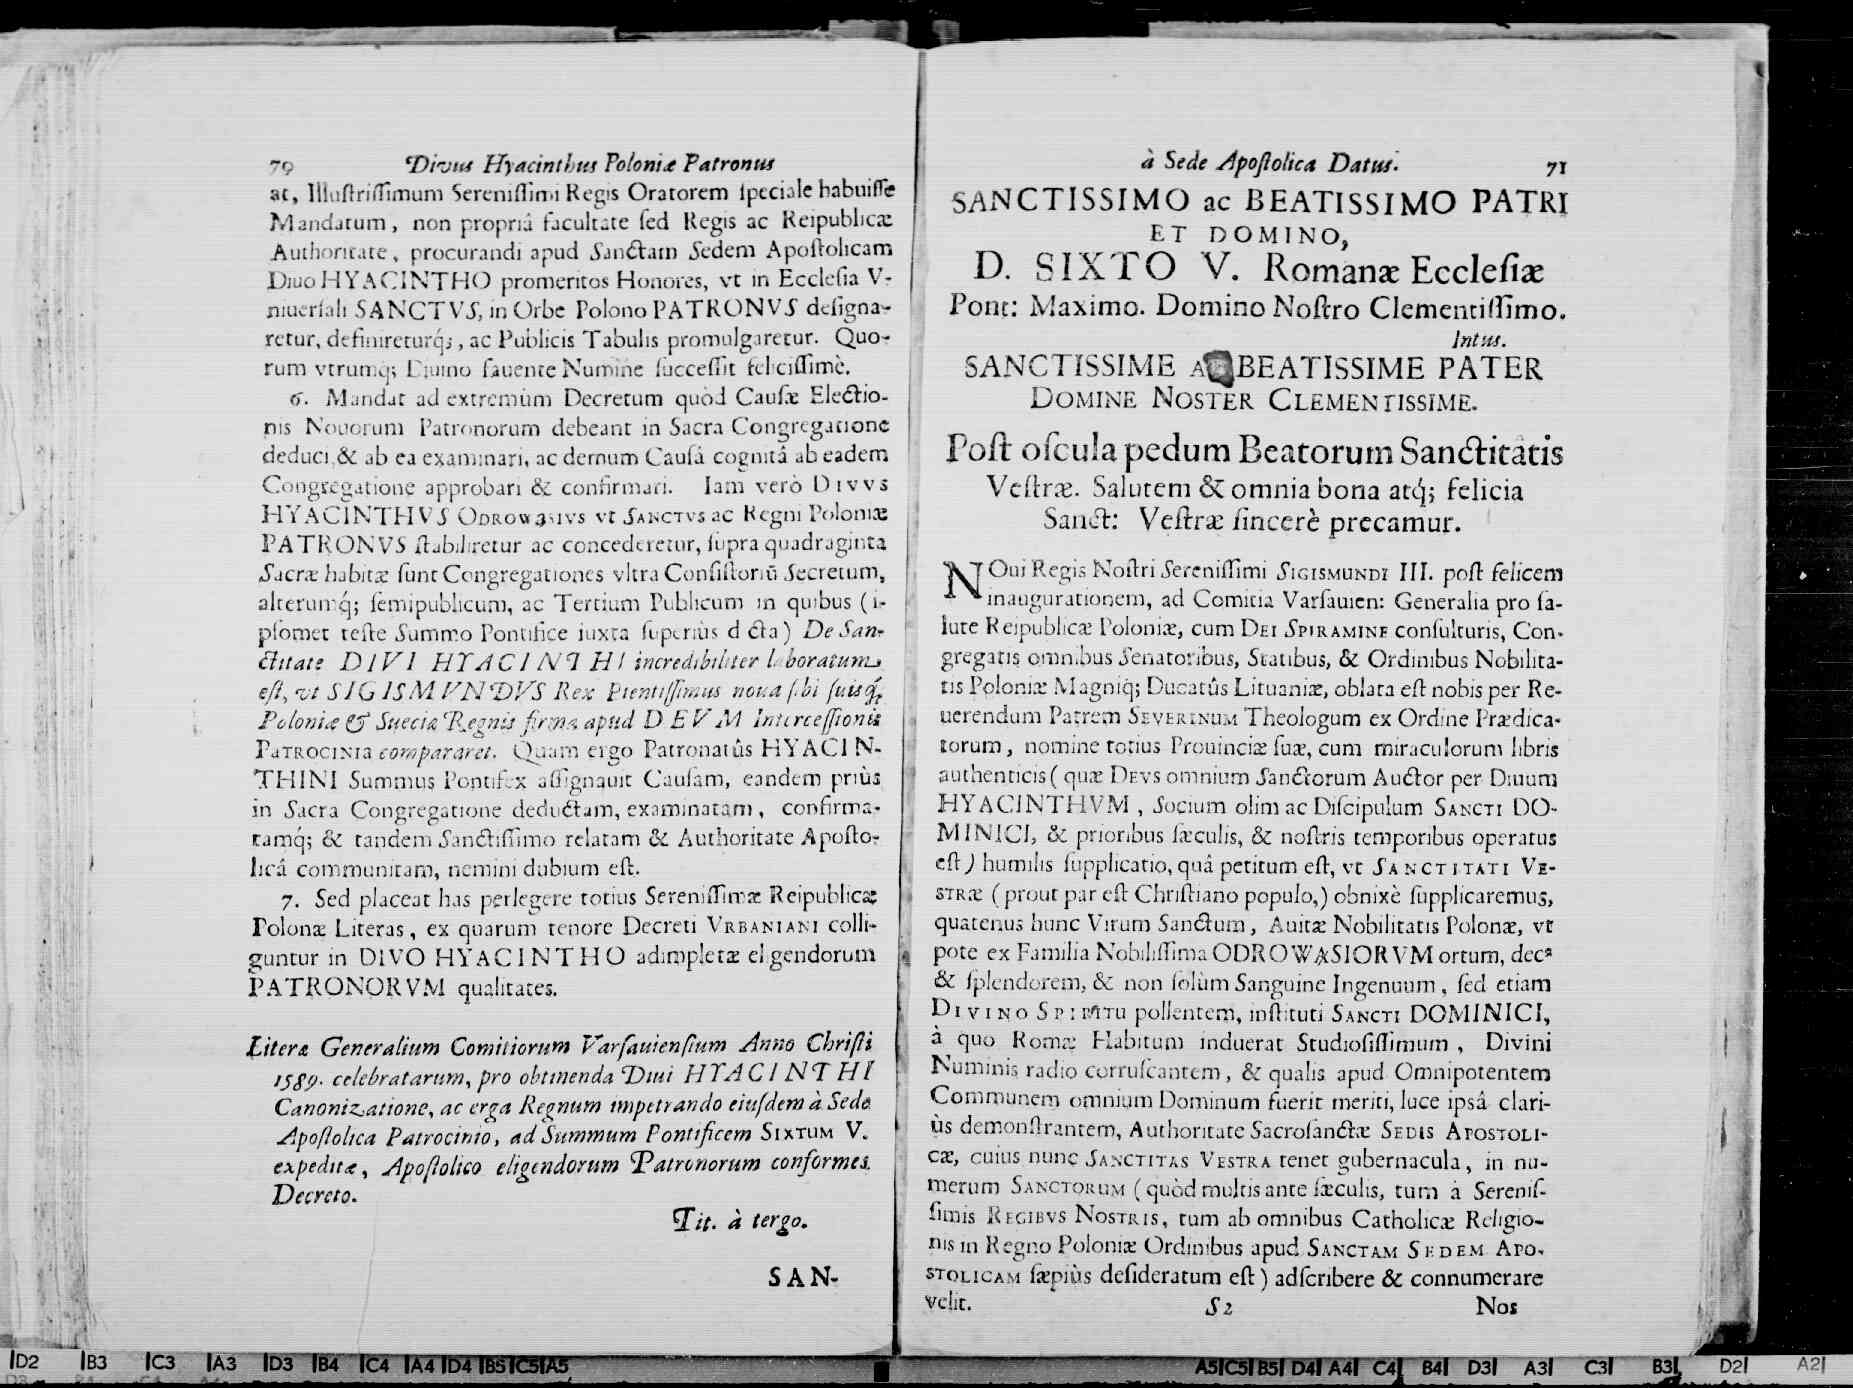 70 Divus Hyacinthus Poloniæ Patronus
at, Illuſtriſſimum Sereniſſimi Regis Oratorem ſpeciale habuiſſe
Mandatum, non propriâ facultate ſed Regis ac Reipublicæ
Authoritate, procurandi apud Sanctam Sedem Apoſtolicam
Diuo HYACINTHO promeritos Honores, vt in Eccleſia V-
niuerſali SANCTVS, in Orbe Polono PATRONVS deſigna-
retur, definireturq́;, ac Publicis Tabulis promulgaretur. Quo-
rum vtrumq; Diuino fauente Numine ſucceſſit feliciſſimè.
6. Mandat ad extremùm Decretum quòd Cauſæ Electio-
nis Nouorum Patronorum debeant in Sacra Congregatione
deduci, & ab ea examinari, ac demum Cauſâ cognitâ ab eadem
Congregatione approbari & confirmari. Iam verò DIVVS
HYACINTHVS ODROWASIVS vt SANCTVS ac Regni Poloniæ
PATRONVS ſtabiliretur ac concederetur, ſupra quadraginta
Sacræ habitæ ſunt Congregationes vltra Conſiſtoriũ Secretum,
alterumq́; ſemipublicum, ac Tertium Publicum in quibus (i-
pſomet teſte Summo Pontifice iuxta ſuperiùs d cta) De San-
ctitate DIVI HYACINTHI incredibiliter laboratum
eſt, vt SIGISMVNDVS Rex Pientiſſimus noua ſibi ſuisq́;
Poloniæ & Sueciæ Regnis firma apud DEVM Interceſſionis
PATROCINIA compararet. Quam ergo Patronatûs HYACIN-
THINI Summus Pontifex aſſignauit Cauſam, eandem priùs
in Sacra Congregatione deductam, examinatam, confirma-
tamq́; & tandem Sanctiſſimo relatam & Authoritate Apoſto-
licâ communitam, nemini dubium eſt.
7. Sed placeat has perlegere totius Sereniſſimæ Reipublicæ
Polonæ Literas, ex quarum tenore Decreti VRBANIANI colli-
guntur in DIVO HYACINTHO adimpletæ eligendorum
PATRONORVM qualitates.
Literæ Generalium Comitiorum Varſauienſium Anno Chriſti
1589. celebratarum, pro obtinenda Diui HYACINTHI
Canonizatione, ac erga Regnum impetrando eiuſdem à Sede
Apoſtolica Patrocinio, ad Summum Pontificem SIXTUM V.
expeditæ, Apoſtolico eligendorum Patronorum conformes
Decreto.
Tit. à tergo.
SAN-
à Sede Apoſtolica Datus. 71
SANCTISSIMO ac BEATISSIMO PATRI
ET DOMINO,
D. SIXTO V. Romanæ Eccleſiæ
Pont: Maximo. Domino Noſtro Clementiſſimo.
Intus.
SANCTISSIME BEATISSIME PATER
DOMINE NOSTER CLEMENTISSIME.
Poſt oſcula pedum Beatorum Sanctitatis
Veſtræ. Salutem & omnia bona atq́; felicia
Sanct: Veſtræ ſincerè precamur.
NOui Regis Noſtri Sereniſſimi SIGISMUNDI III. poſt felicem
inaugurationem, ad Comitia Varſauien: Generalia pro ſa-
lute Reipublicæ Poloniæ, cum DEI SPIRAMINE conſulturis, Con-
gregatis omnibus Senatoribus, Statibus, & Ordinibus Nobilita-
tis Poloniæ Magniq́; Ducatûs Lituaniæ, oblata eſt nobis per Re-
uerendum Patrem SEVERINUM Theologum ex Ordine Prædica-
torum, nomine totius Prouinciæ ſuæ, cum miraculorum libris
authenticis (quæ DEVS omnium Sanctorum Auctor per Diuum
HYACINTHVM, Socium olim ac Diſcipulum SANCTI DO-
MINICI, & prioribus ſæculis, & noſtris temporibus operatus
eſt) humilis ſupplicatio, quâ petitum eſt, vt SANCTITATI VE-
STRÆ (prout par eſt Chriſtiano populo,) obnixè ſupplicaremus,
quatenus hunc Virum Sanctum, Auitæ Nobilitatis Polonæ, vt
pote ex Familia Nobiliſſima ODROWASIORVM ortum, decꝰ
& ſplendorem, & non ſolùm Sanguine Ingenuum, ſed etiam
DIVINO SPIRITU pollentem, inſtituti SANCTI DOMINICI,
à quo Romæ Habitum induerat Studioſiſſimum, Divini
Numinis radio corruſcantem, & qualis apud Omnipotentem
Communem omnium Dominum fuerit meriti, luce ipsâ clari-
ùs demonſtrantem, Authoritate Sacroſanctæ SEDIS APOSTOLI-
CÆ, cuius nunc SANCTITAS VESTRA tenet gubernacula, in nu-
merum SANCTORUM (quòd multis ante ſæculis, tum à Sereniſ-
ſimis REGIBVS NOSTRIS, tum ab omnibus Catholicæ Religio-
nis in Regno Poloniæ Ordinibus apud SANCTAM SEDEM APO-
STOLICAM ſæpiùs deſideratum eſt) adſcribere & connumerare
velit. S2 Nos
D2 B3 C3 A3 D3 B4 C4 A4 D4 B5 C5 A5 A5 C5 B5 D4 A4 C4 B4 D3 A3 C3 B3 D2 A2